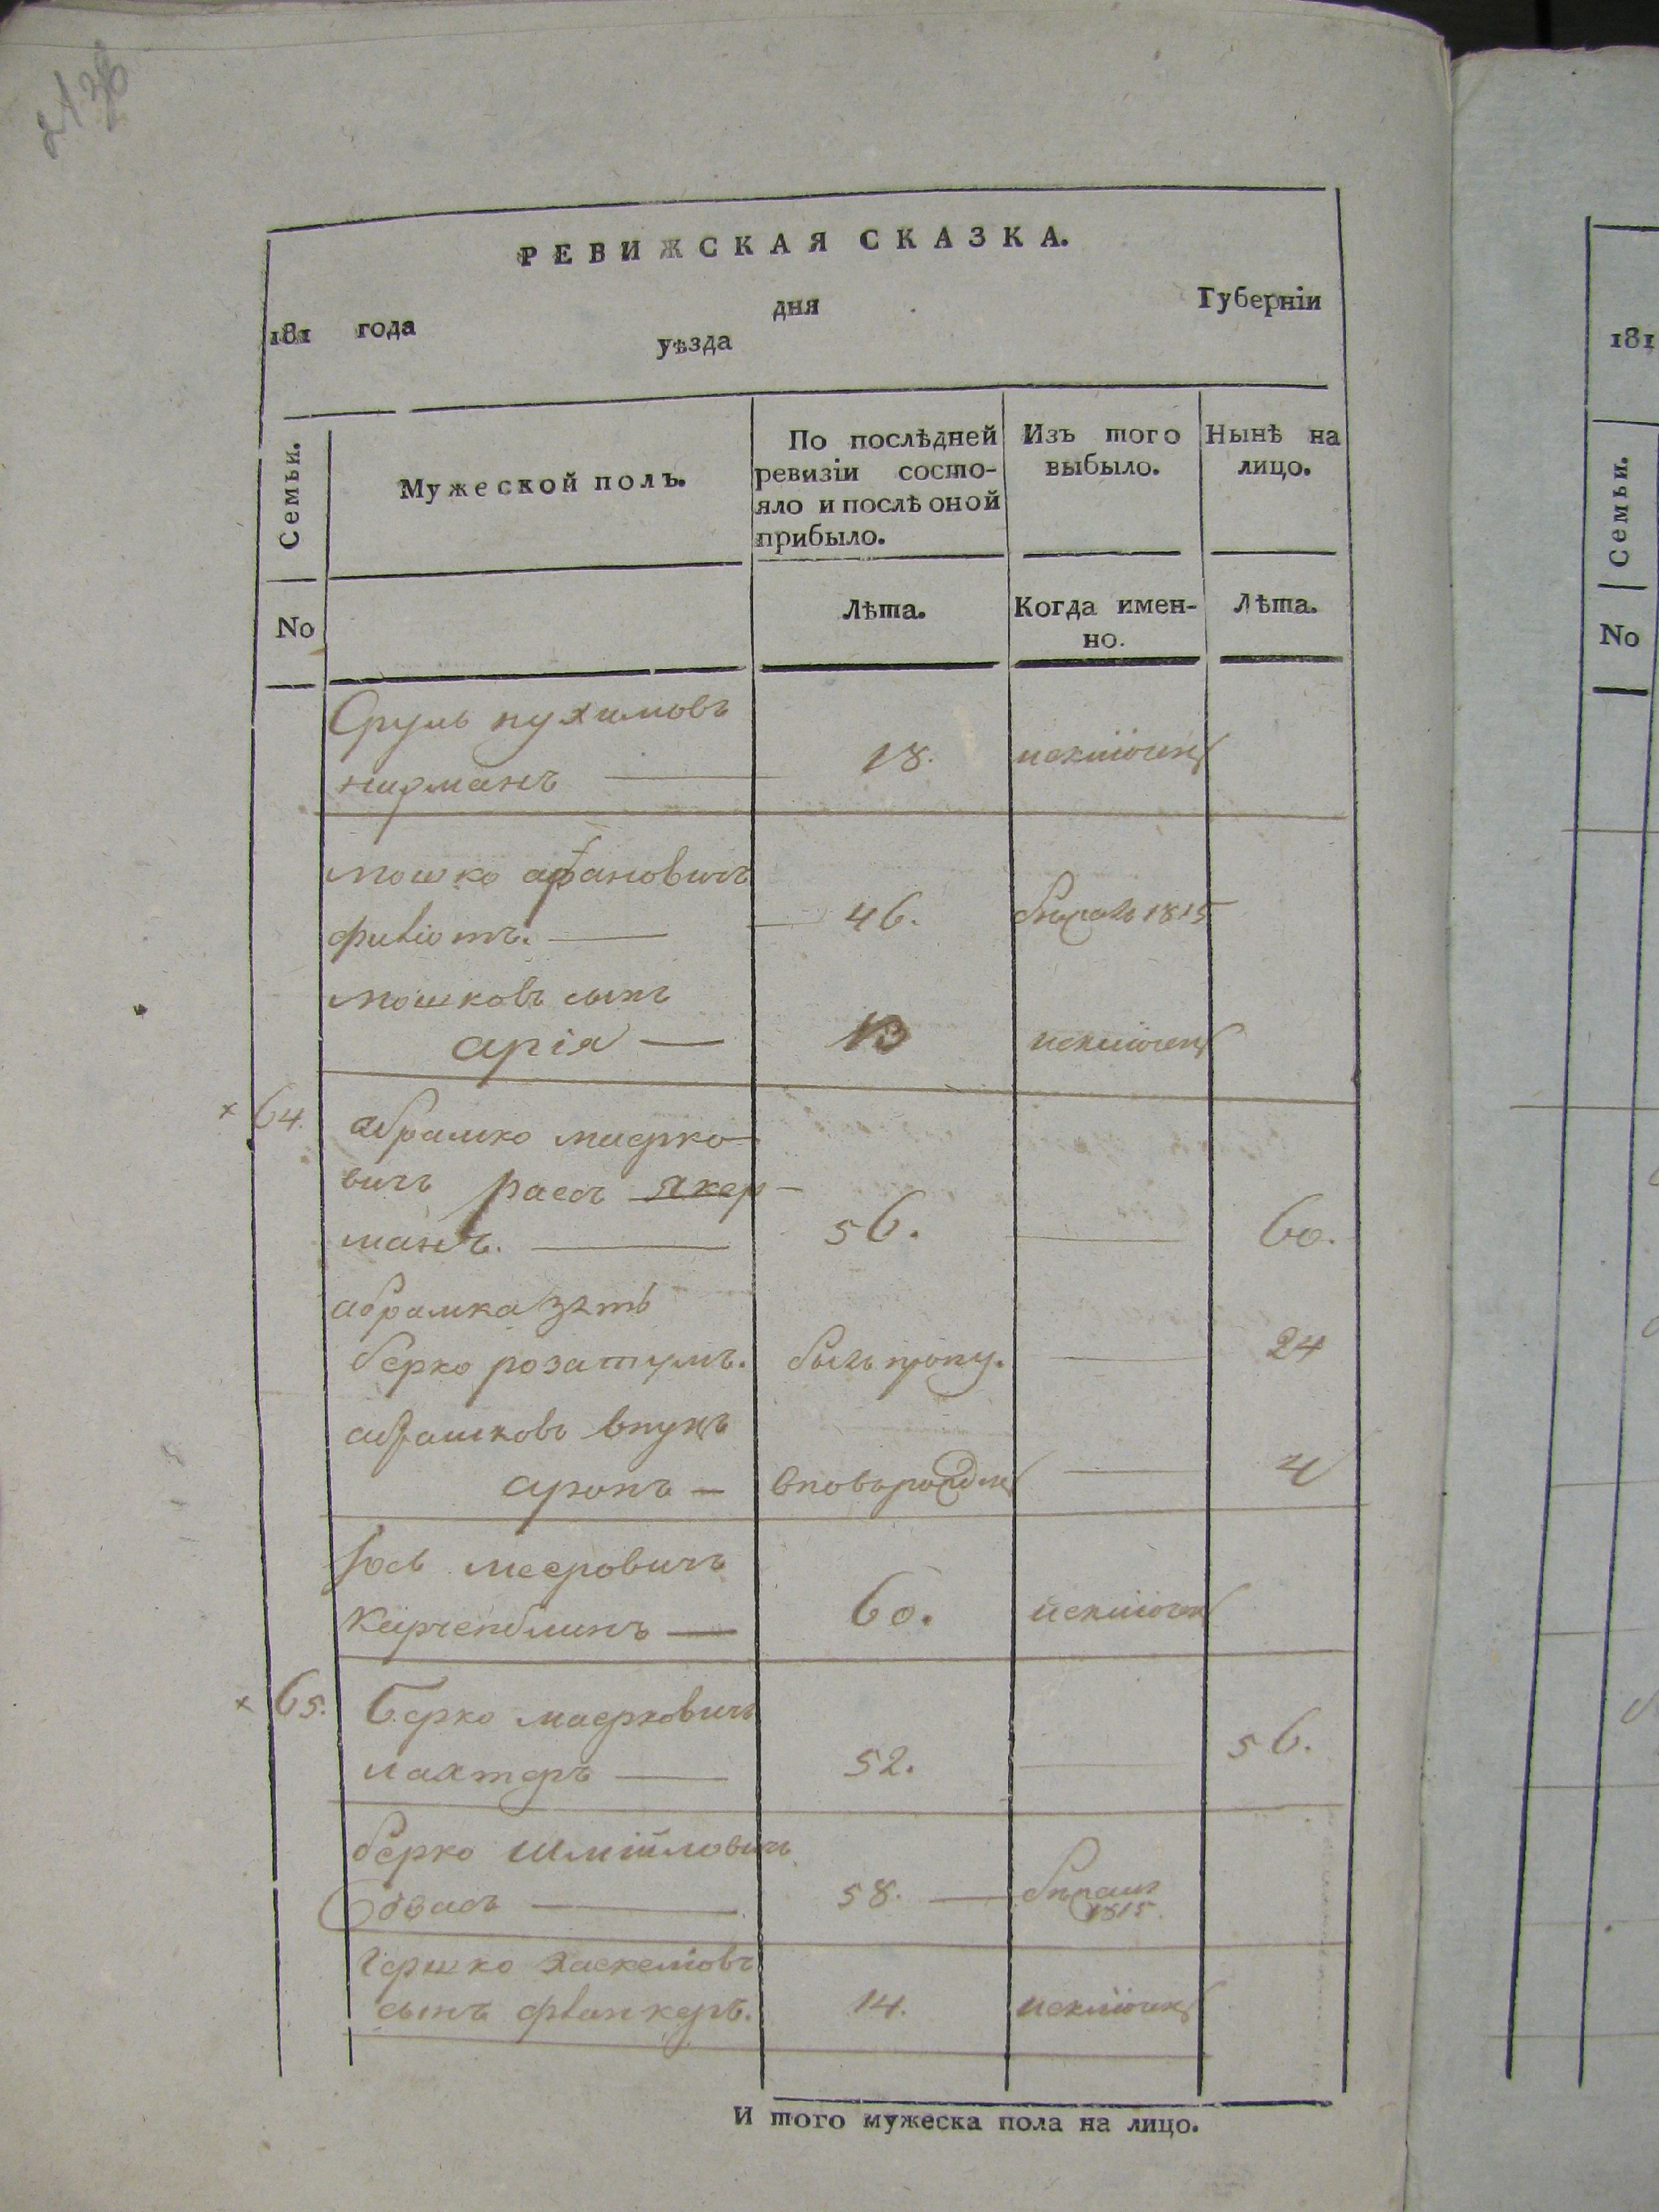 РЕВИЖСКАЯ СКАЗКА.
181 года дня Губерніи
уѣзда
Семьи.
Мужеской полъ.
По послѣдней ревизіи состо-
яло и послѣ оной прибыло.
Изъ того выбыло.
Нынѣ на лицо.
No
Лѣта.
Когда имен-
но.
Лѣта.
Сруль нухимовъ
нирманъ — 18. исключенъ
мошко
46. 1815
мошковъ сынъ
арія — 13 исключенъ
x 64. абрамко маерко-
вичъ
манъ. — 56. — 60.
абрамка зять
берко розатулъ. былъ пропу. — 24
абрашковъ внукъ
аронъ — вновьрожден — 4
Іось мееровичъ
60. исключен
x 65. Берко маерковичъ
лахтеръ — 52. — 56.
берко шміиловичъ
58. — 1815
гершко хаскелювъ
сынъ 14. исключенъ
И того мужеска пола на лицо.
181
Семьи.
No